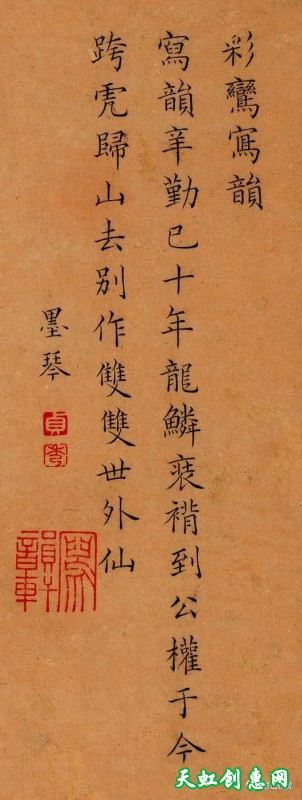 彩鸞寫韻
寫韻辛勤已十年龍鱗褙到公權于今
跨虎歸山去別作雙雙世外仙
墨琴
貞
秀
寫韻軒
天虹创惠网